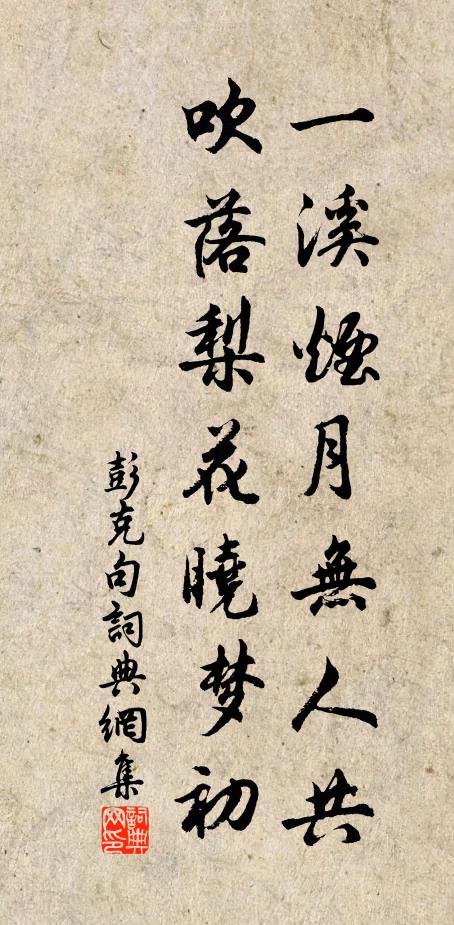 一溪煙月無人共
吹落梨花曉梦初
彭克句詞典網集
詞典网印